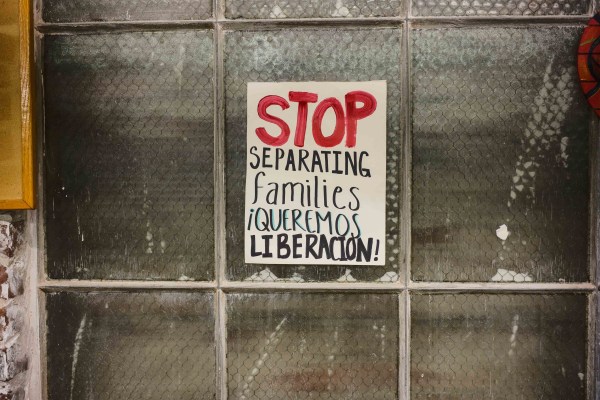 STOP
SEPARATING
families
¡QUEREMOS
LIBERACIÓN!